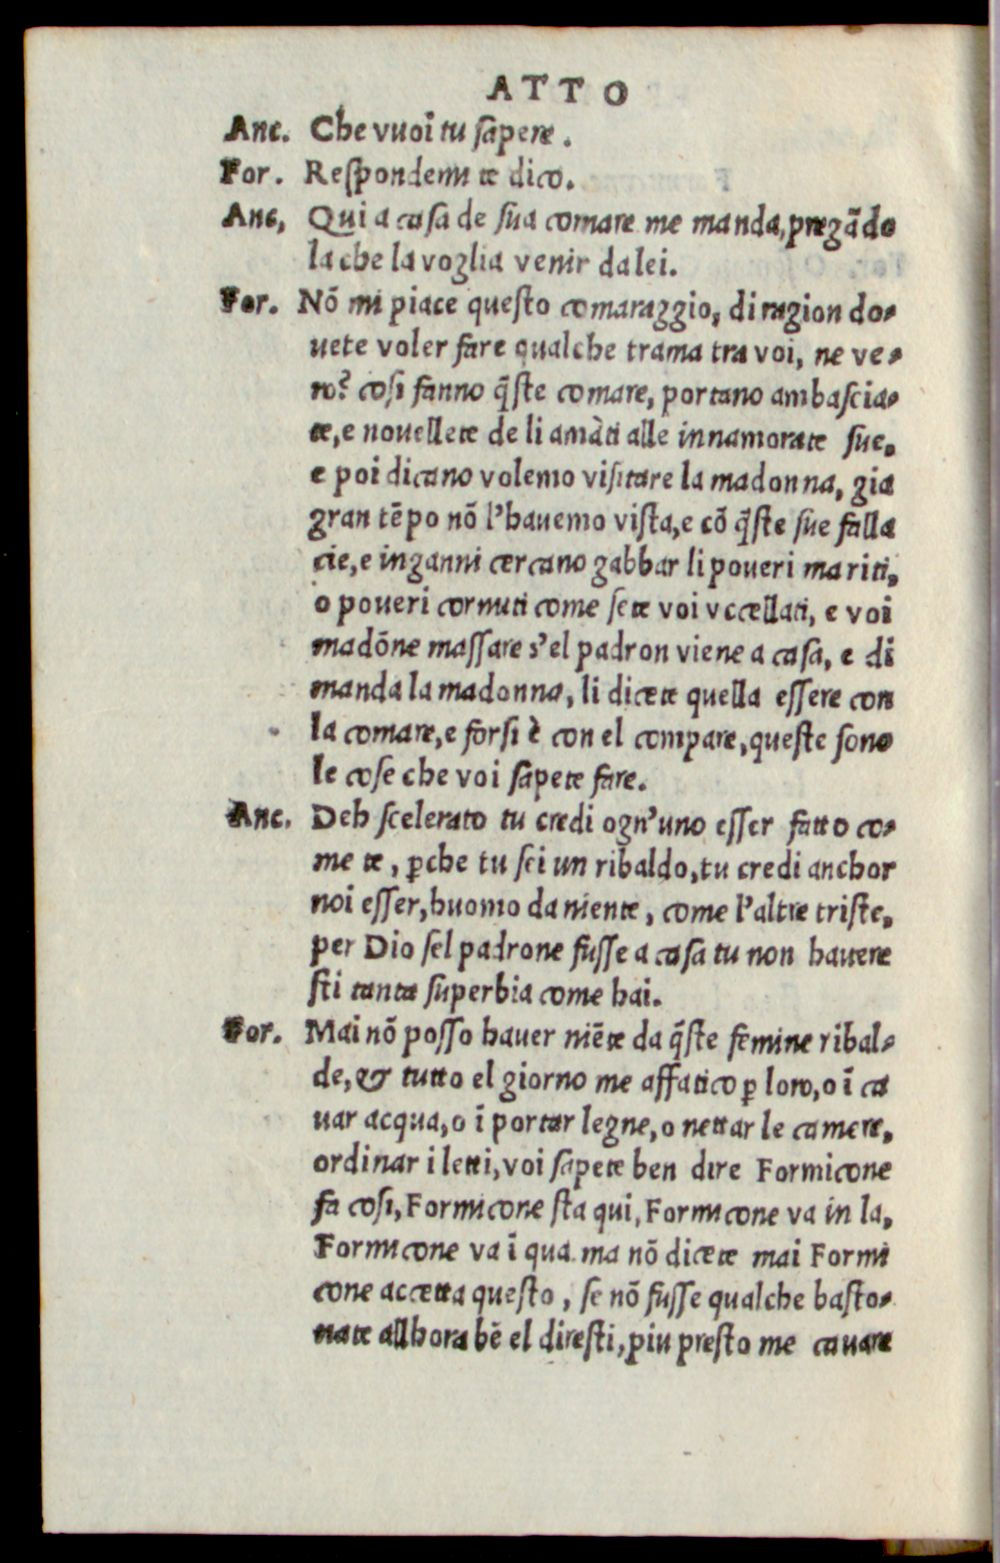 ATTO
Anc. Che vuoi tu sapere.
For. Respondemi te dico.
Anc, Qui a casa de sua comare me manda, pregãdo
la che la voglia venir da lei.
For. Nõ mi piace questo comaraggio, di ragion do-
uete voler fare qualche trama tra voi, ne ve-
ro? cosi fanno q̃ste comare, portano ambascia-
te, e nouellete de li amãti alle innamorate sue,
e poi dicano volemo visitare la madonna, gia
gran tẽpo nõ l'hauemo vista, e cõ q̃ste sue falla
cie, e inganni cercano gabbar li poueri mariti,
o poueri cornuti come sete voi vccellati, e voi
madõne massare s'el padron viene a casa, e di
manda la madonna, li dicete quella essere con
la comare, e forsi è con el compare, queste sono
le cose che voi sapete fare.
Anc. Deh scelerato tu credi ogn'uno esser fatto co-
me te, ꝑche tu sei un ribaldo, tu credi anchor
noi esser, huomo da niente, come l'altre triste,
per Dio sel padrone fusse a casa tu non hauere
sti tanta superbia come hai.
For. Mai nõ posso hauer niẽte da q̃ste femine ribal-
de, & tutto el giorno me affatico ꝑ loro, o ĩ ca
uar acqua, o ĩ portar legne, o nettar le camere,
ordinar i letti, voi sapete ben dire Formicone
fa cosi, Formicone sta qui, Formicone va in la,
Formicone va ĩ qua ma nõ dicete mai Formi
cone accetta questo, se nõ fusse qualche basto-
nate allhora bẽ el diresti, piu presto me cauare